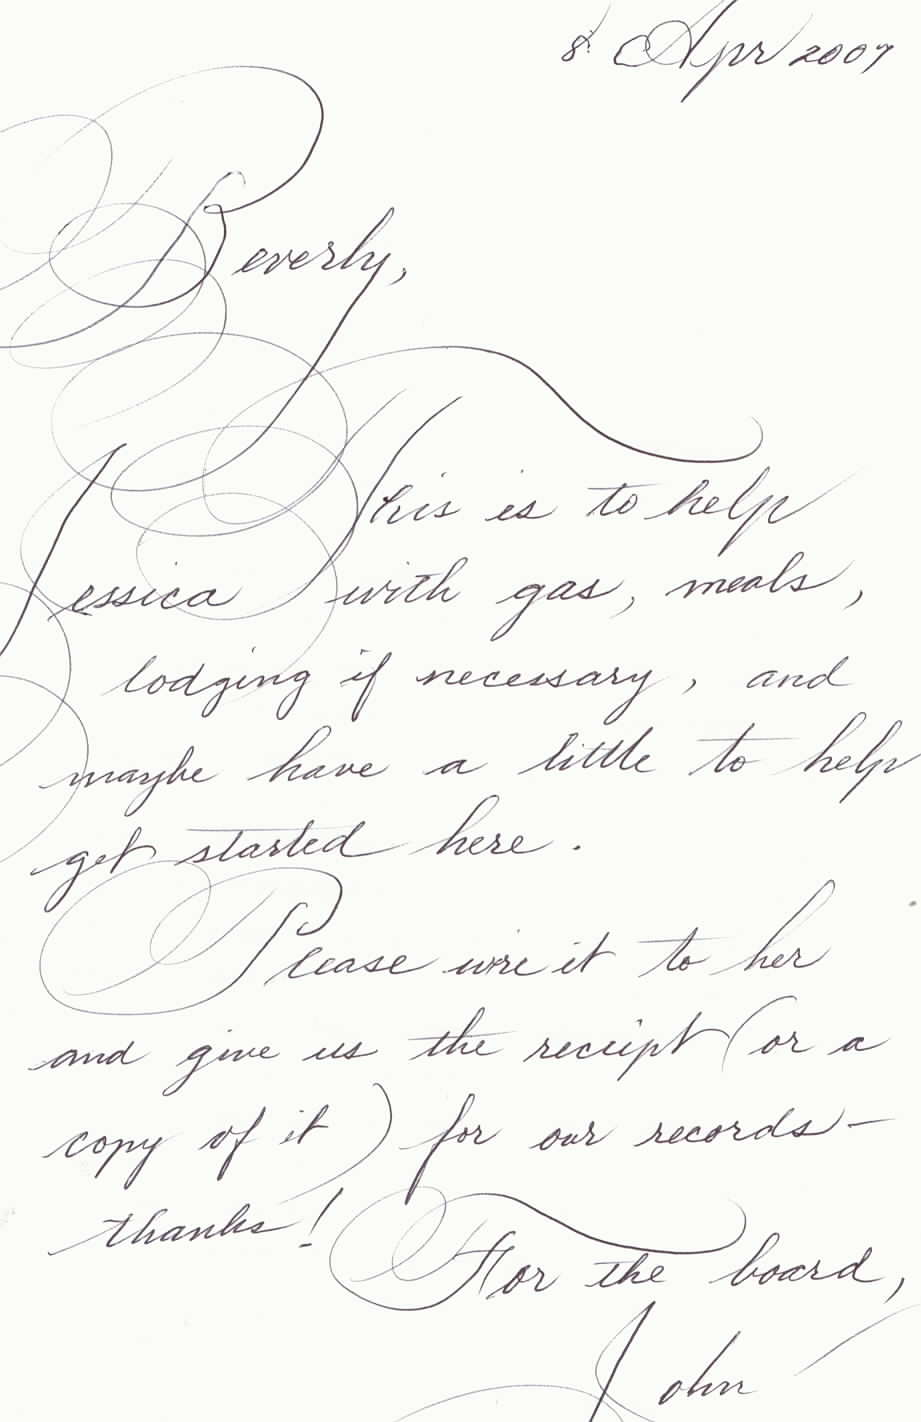 8 Apr 2007
Beverly,
This is to help
Jessica with gas, meals,
lodging if necessary, and
maybe have a little to help
get started here.
Please wire it to her
and give us the receipt (or a
copy of it) for our records–
thanks!
For the board,
John